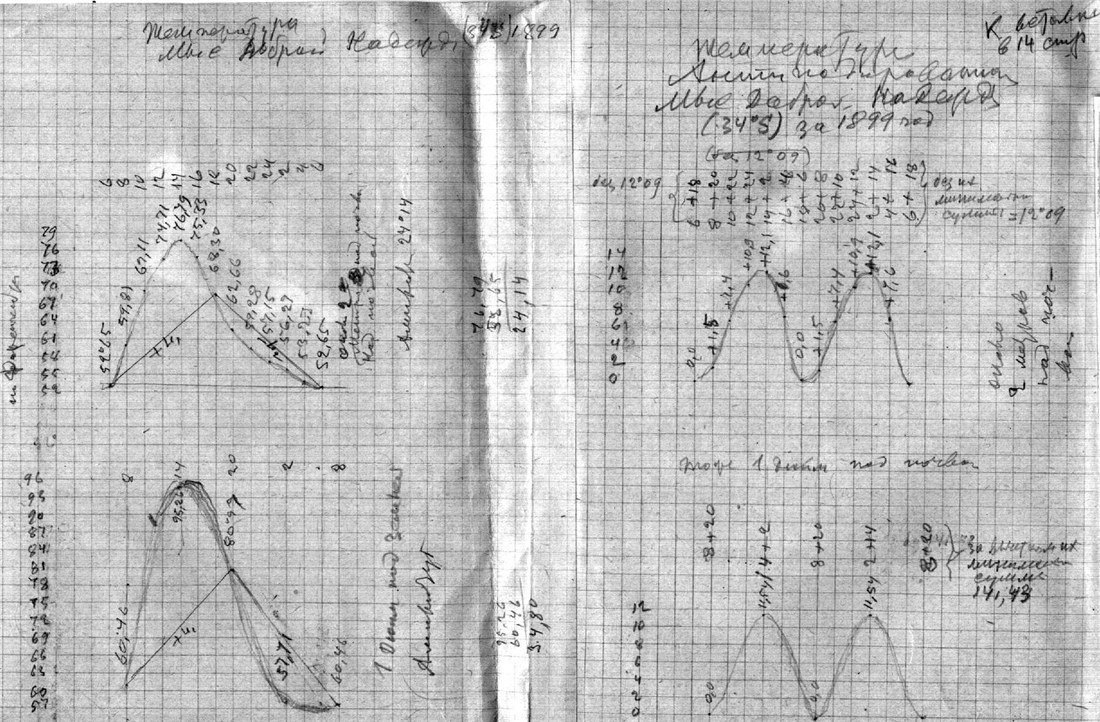 Температура
Мыс Доброй Надежды (34°S) 1899
6
8
10
12
14
16
18
20
22
24
2
4
6
79
76
73
70
67
64
61
55
52
52,65
59,81
67,11
74,21
76,79
75,53
68,30
62,66
59,28
57,15
56,27
52,65
Амплитуда 24°14
76,79
52,65
24,14
8
14
20
2
8
96
93
90
87
84
81
78
75
72
69
66
63
60
57
60,46
95,26
80,97
57,71
60,46
1 Дюйм над Землей
Амплитуда
95,26
60,46
34,80
К
в 14 стр
Температура
Мыс Доброй Надежды
(34°S) за 1899 год
без 12°09
6+18
8+20
10+22
12+24
14+2
16+4
18+6
20+8
22+10
24+12
2+14
4+16
6+18
без их
минимальн
суммы =12°09
14
12
10
8
6
4
2
0
0,0
+1,5
+7,4
+10,9
+12,1
+7,6
0,0
+1,5
+7,4
+10,9
+12,1
+7,6
около
2 метров
над поч-
вой
тоже 1 дюйм над почвой
8+20
14+2
8+20
2+14
8+20
за вычетом их
минимальн
суммы
141,43
12
10
8
6
4
2
0
0,0
11,54
0,0
11,54